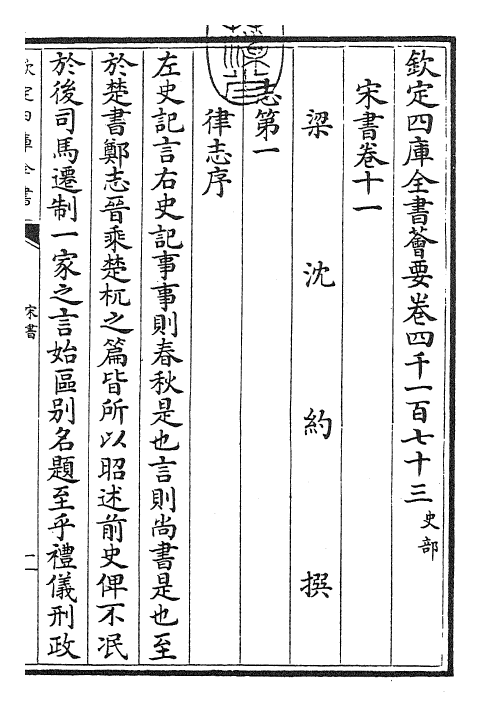 欽定四庫全書薈要卷四千一百七十三 史部
宋書卷十一
梁 沈 約 撰
志第一
律志序
左史記言右史記事事則春秋是也言則尚書是也至
於楚書鄭志晉乘楚杌之篇皆所以昭述前史俾不泯
於後司馬遷制一家之言始區别名題至乎禮儀刑政
欽定四庫全書
宋書